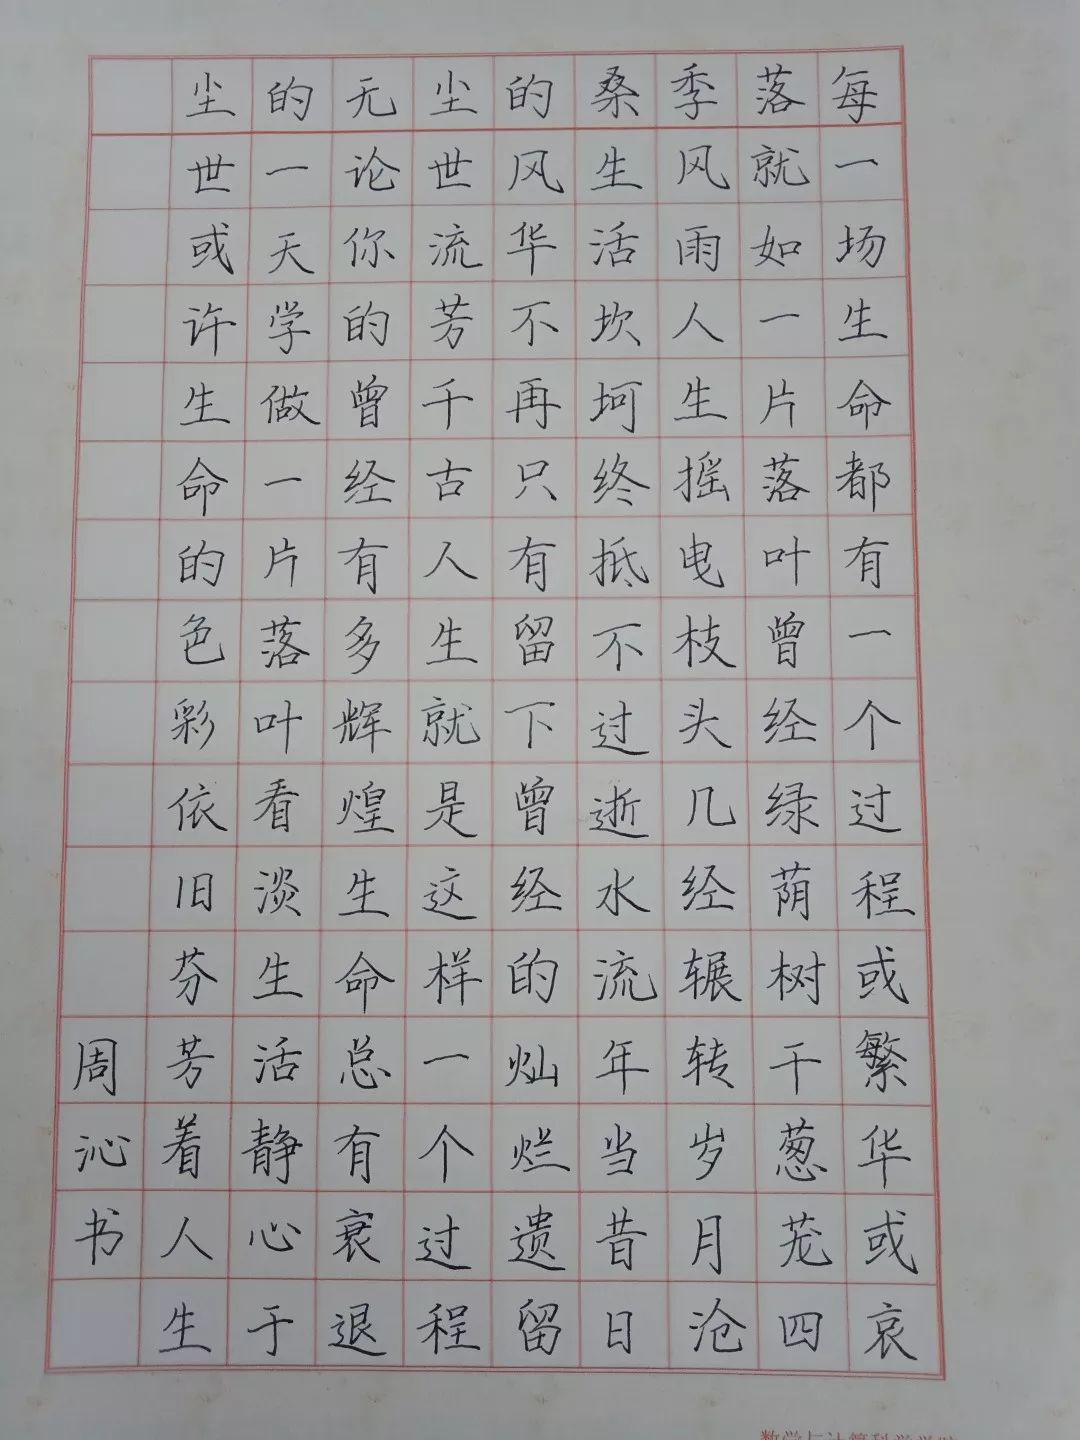 每一场生命都有一个过程或繁华或哀
落就如一片落叶曾经绿荫树干葱茏四
季风雨人生摇电枝头几经辗转岁月沧
桑生活坎坷终抵不过逝水流年当昔日
的风华不再只有留下曾经的灿烂遗留
尘世流芳千古人生就是这样一个过程
无论你的曾经有多辉煌生命总有衰退
的一天学做一片落叶看淡生活静心于
尘世或许生命的色彩依旧芬芳着人生
周沁书